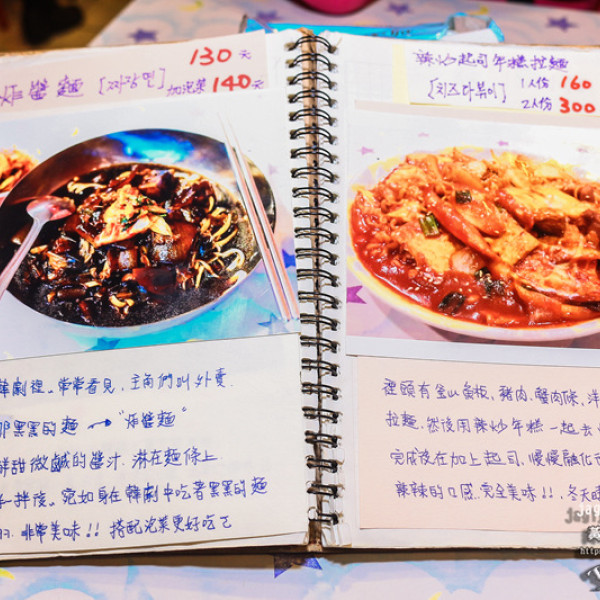 130元
炸醬麵 [짜장면] 加泡菜 140元
韓劇裡。常常看見,主角們叫外賣
那黑黑的麵 → "炸醬麵"
鮮甜微鹹的醬汁.淋在麵條上
拌後。宛如身在韓劇中吃著黑黑的麵
非常美味!! 搭配泡菜更好吃
辣炒起司年糕拉麵
[치즈라볶이] 1人份 160
2人份 300
裡頭有釜山魚板、豬肉、蟹肉條、洋
拉麵.然後用辣炒年糕一起去
完成後在加上起司.慢慢融化
辣辣的口感.完全美味!!.冬天